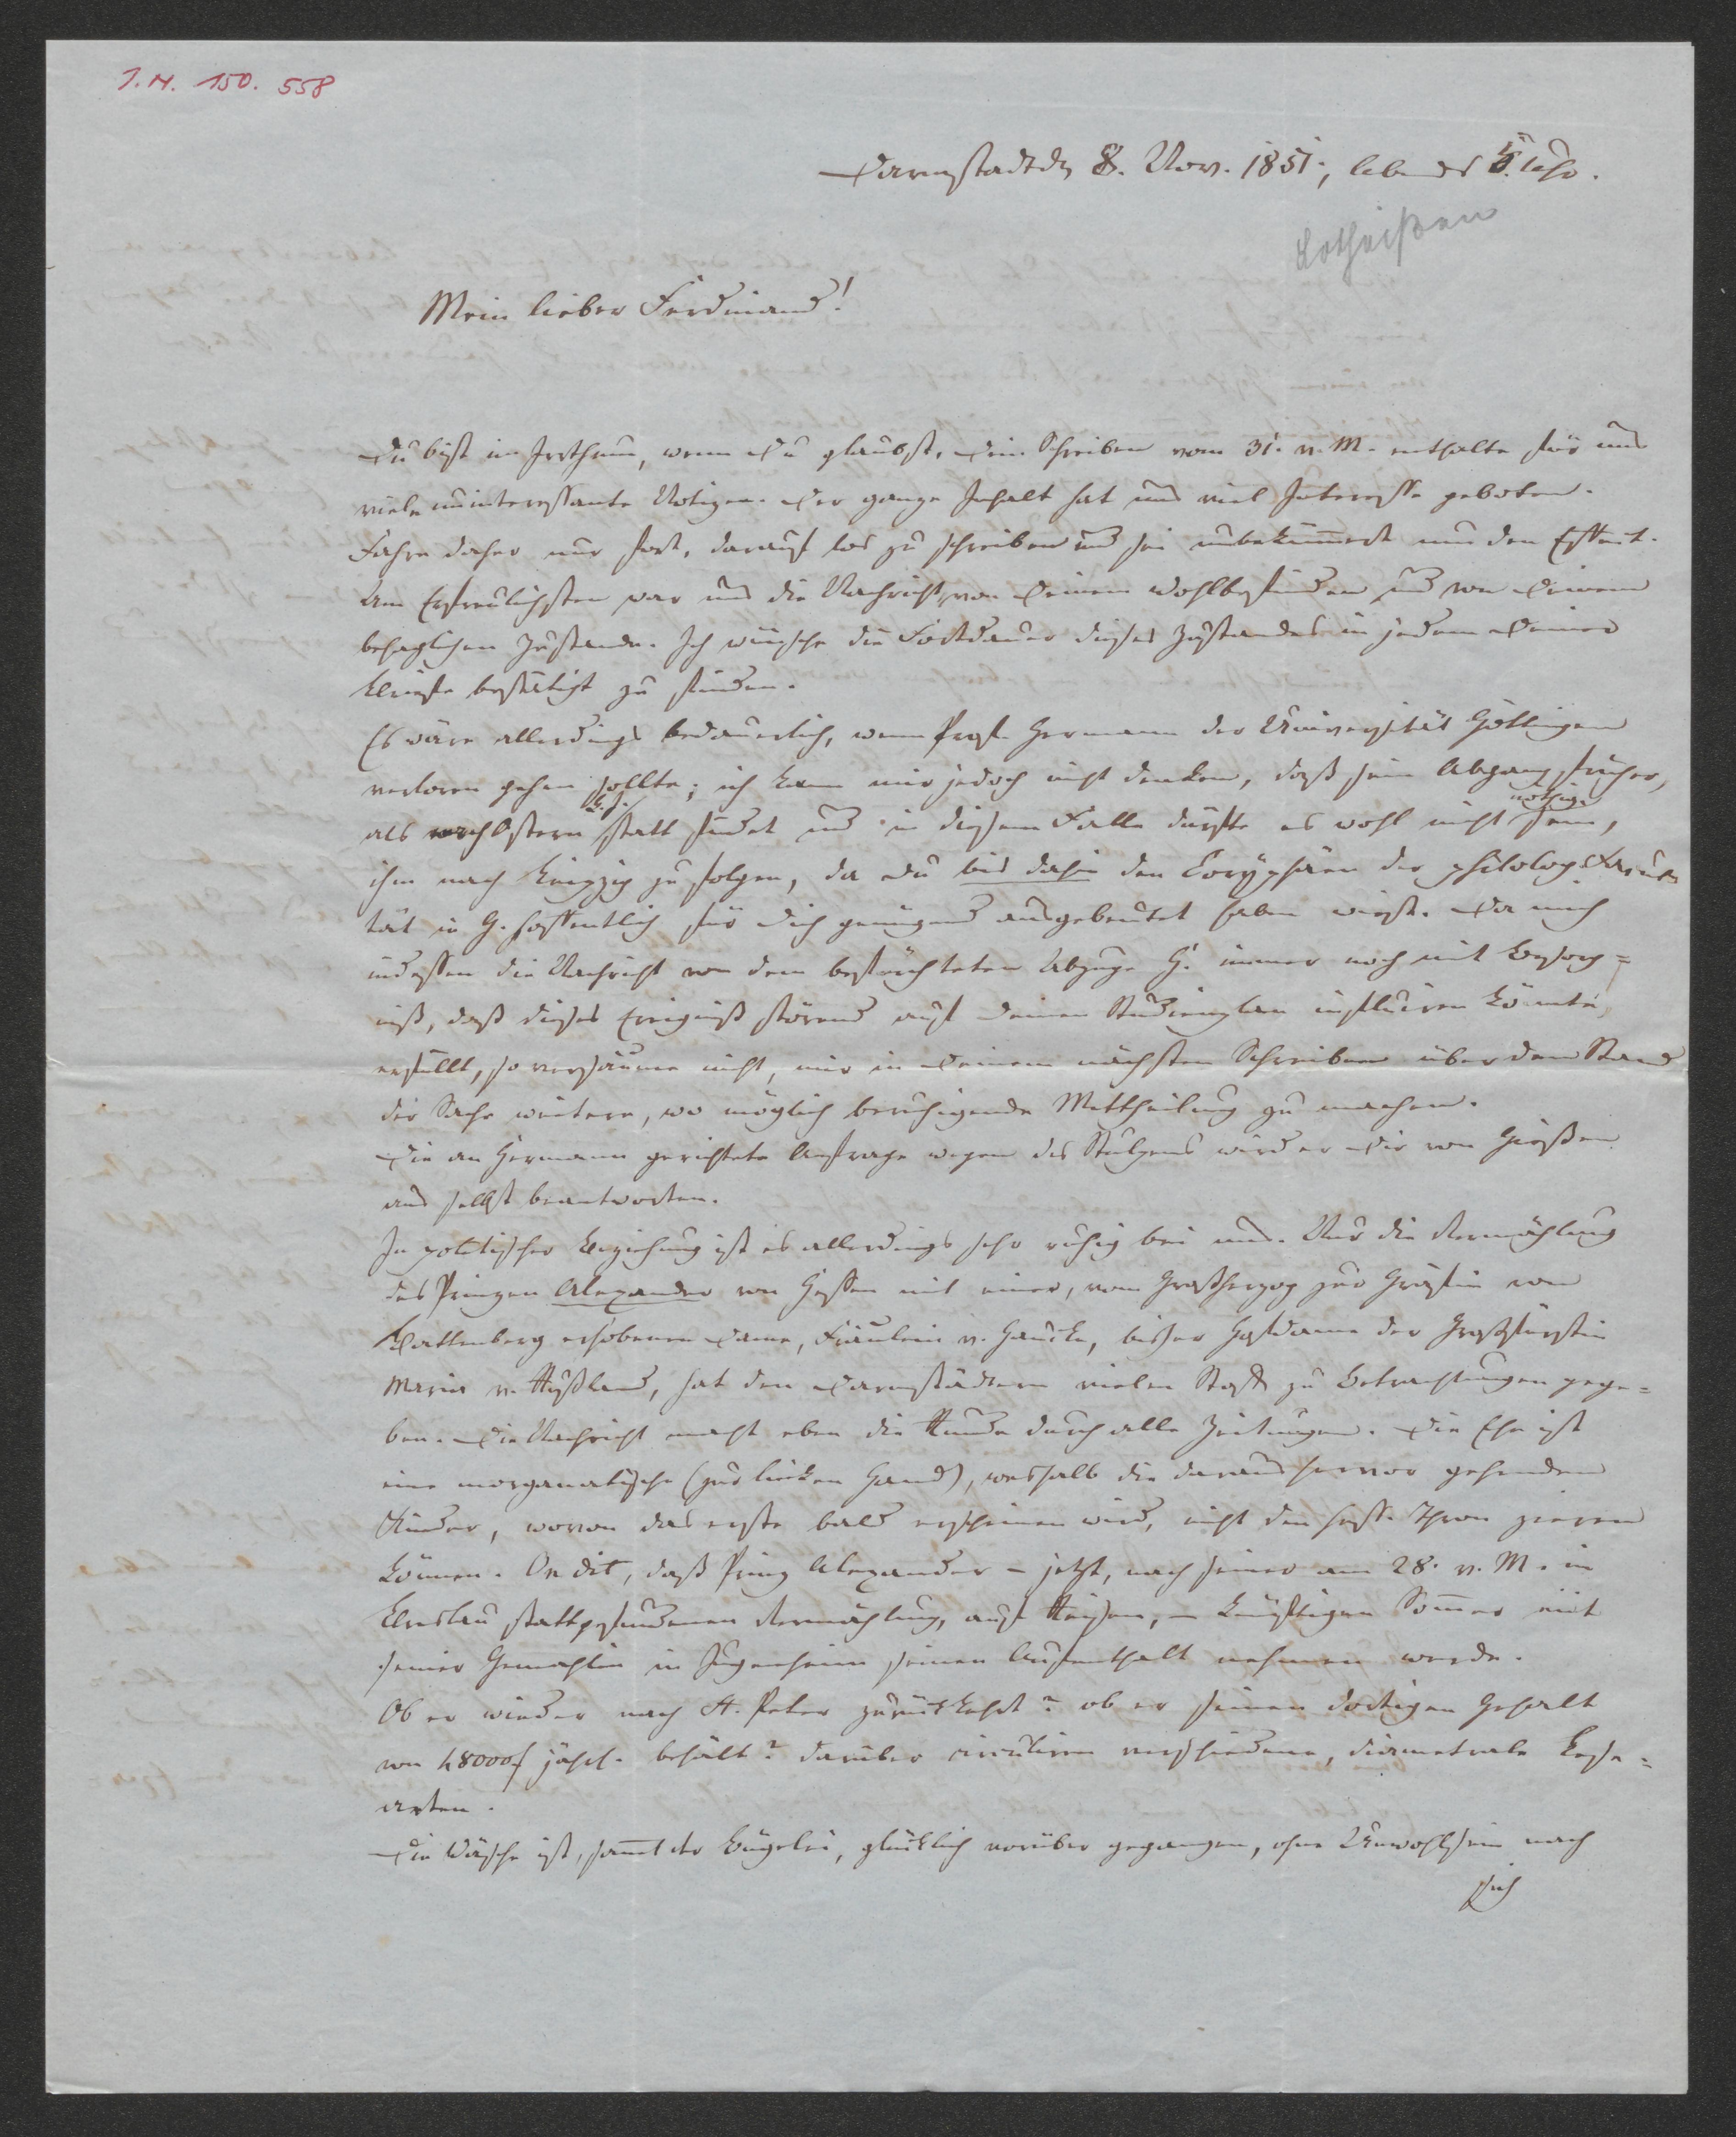 J.N. 150.558
Darmstadt d. 8. Nov. 1851, abends 6 Uhr.
Lotheißen
Mein lieber Ferdinand!
Du bist im Irrthum, wenn Du glaubst, Dein Schreiben vom 31. v. M. enthalte für uns
viele uninteressante Notizen. Der ganze Inhalt hat uns viel Interesse geboten.
Fahre daher nur fort, darauf los zu schreiben und sei unbekümmert um den Effect.
Am Erfreulichsten war uns die Nachricht von Deinem Wohlbefinden und von Deinem
behaglichen Zustande. Ich wünsche die Fortdauer dieses Zustandes in jedem Deiner
Briefe bestätigt zu finden.
Es wäre allerdings bedauerlich, wenn Prof. Hermann der Universität Göttingen
verloren gehen sollte; ich kann mir jedoch nicht denken, daß sein Abgang früher,
als nach Ostern k. J. statt findet und in diesem Falle dürfte es wohl nicht nöthig sein,
ihm nach Leipzig zu folgen, da Du bis dahin den Coryphäen der philolog. Facul
tät in G. hoffentlich für Dich genügend ausgebeutet haben wirst. Da mich
indessen die Nachricht von dem befürchteten Abzuge H. immer noch mit Besorg=
niß, daß dieses Ereigniß störend auf Deinen Studienplan influiren könnte,
erfüllt, so versäume nicht, mir in Deinem nächsten Schreiben über den Stand
der Sache weitere, wo möglich beruhigende Mittheilung zu machen.
Die an Hermann gerichtete Anfrage wegen des Stulzens wird er Dir von Gießen
aus selbst beantworten.
In politischer Beziehung ist es allerdings sehr ruhig bei uns. Nur die Vermählung
des Prinzen Alexander von Hessen mit einer, vom Großherzog zur Gräfin von
Battenberg erhobenen Dame, Fräulein v. Haucke, bisher Hofdame der Großfürstin
Maria v. Rußland, hat den Darmstädtern vielen Stoff zu Betrachtungen gege=
ben. Die Nachricht macht eben die Runde durch alle Zeitungen. Die Ehe ist
eine morganatische (zur linken Hand), weshalb die daraus hervor gehenden
Kinder, wovon das erste bald erscheinen wird, nicht den hess. Thron zieren
können. On dit, daß Prinz Alexander – jetzt, nach seiner am 28. v. M. in
Breslau stattgefundenen Vermählung, auf Reisen, – künftigen Sommer mit
seiner Gemahlin in Jugenheim seinen Aufenthalt nehmen werde.
Ob er wieder nach St. Peter zurückkehrt? ob er seinen dortigen Gehalt
von 48000 f jährl. behält? darüber circuliren verschiedene, diametrale Lese=
arten.
Die Wäsche ist, sammt der Bügelei, glücklich vorüber gegangen, ohne Unwohlsein nach
sich